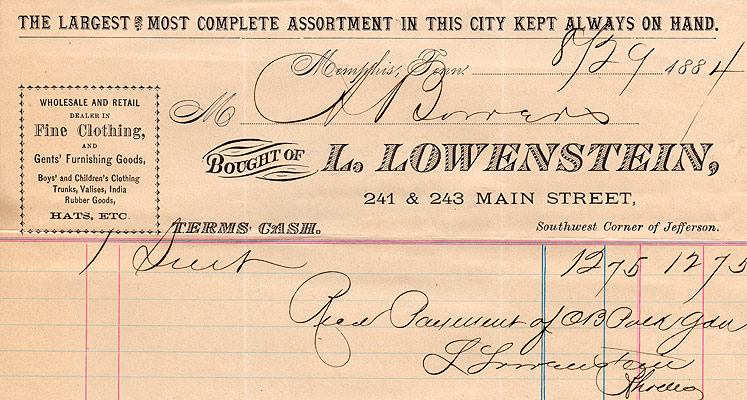 THE LARGEST AND MOST COMPLETE ASSORTMENT IN THIS CITY KEPT ALWAYS ON HAND.
Memphis, Tenn. 8/29 1884
M Bowers
WHOLESALE AND RETAIL
DEALER IN
Fine Clothing,
AND
Gents' Furnishing Goods,
Boys' and Children's Clothing
Trunks, Valises, India
Rubber Goods,
HATS, ETC.
BOUGHT OF L. LOWENSTEIN,
241 & 243 MAIN STREET,
TERMS CASH. Southwest Corner of Jefferson.
1 Suit 12 75 12 75
Recd Payment of OB Polk
L Lowenstein